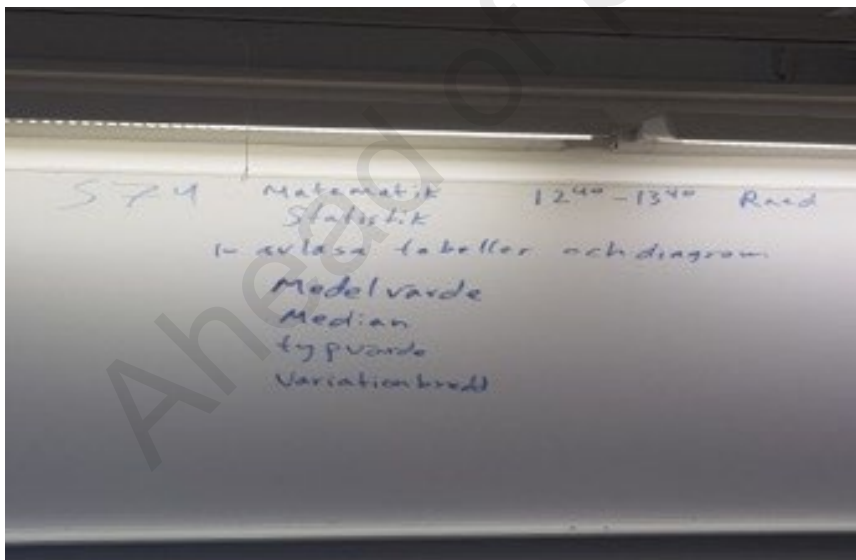 S74 Matematik 12⁴⁰-13⁴⁰ Raed
Statistik
1- avläsa tabeller och diagram
Medelvärde
Median
typvärde
Variationbredd
Ahead of p